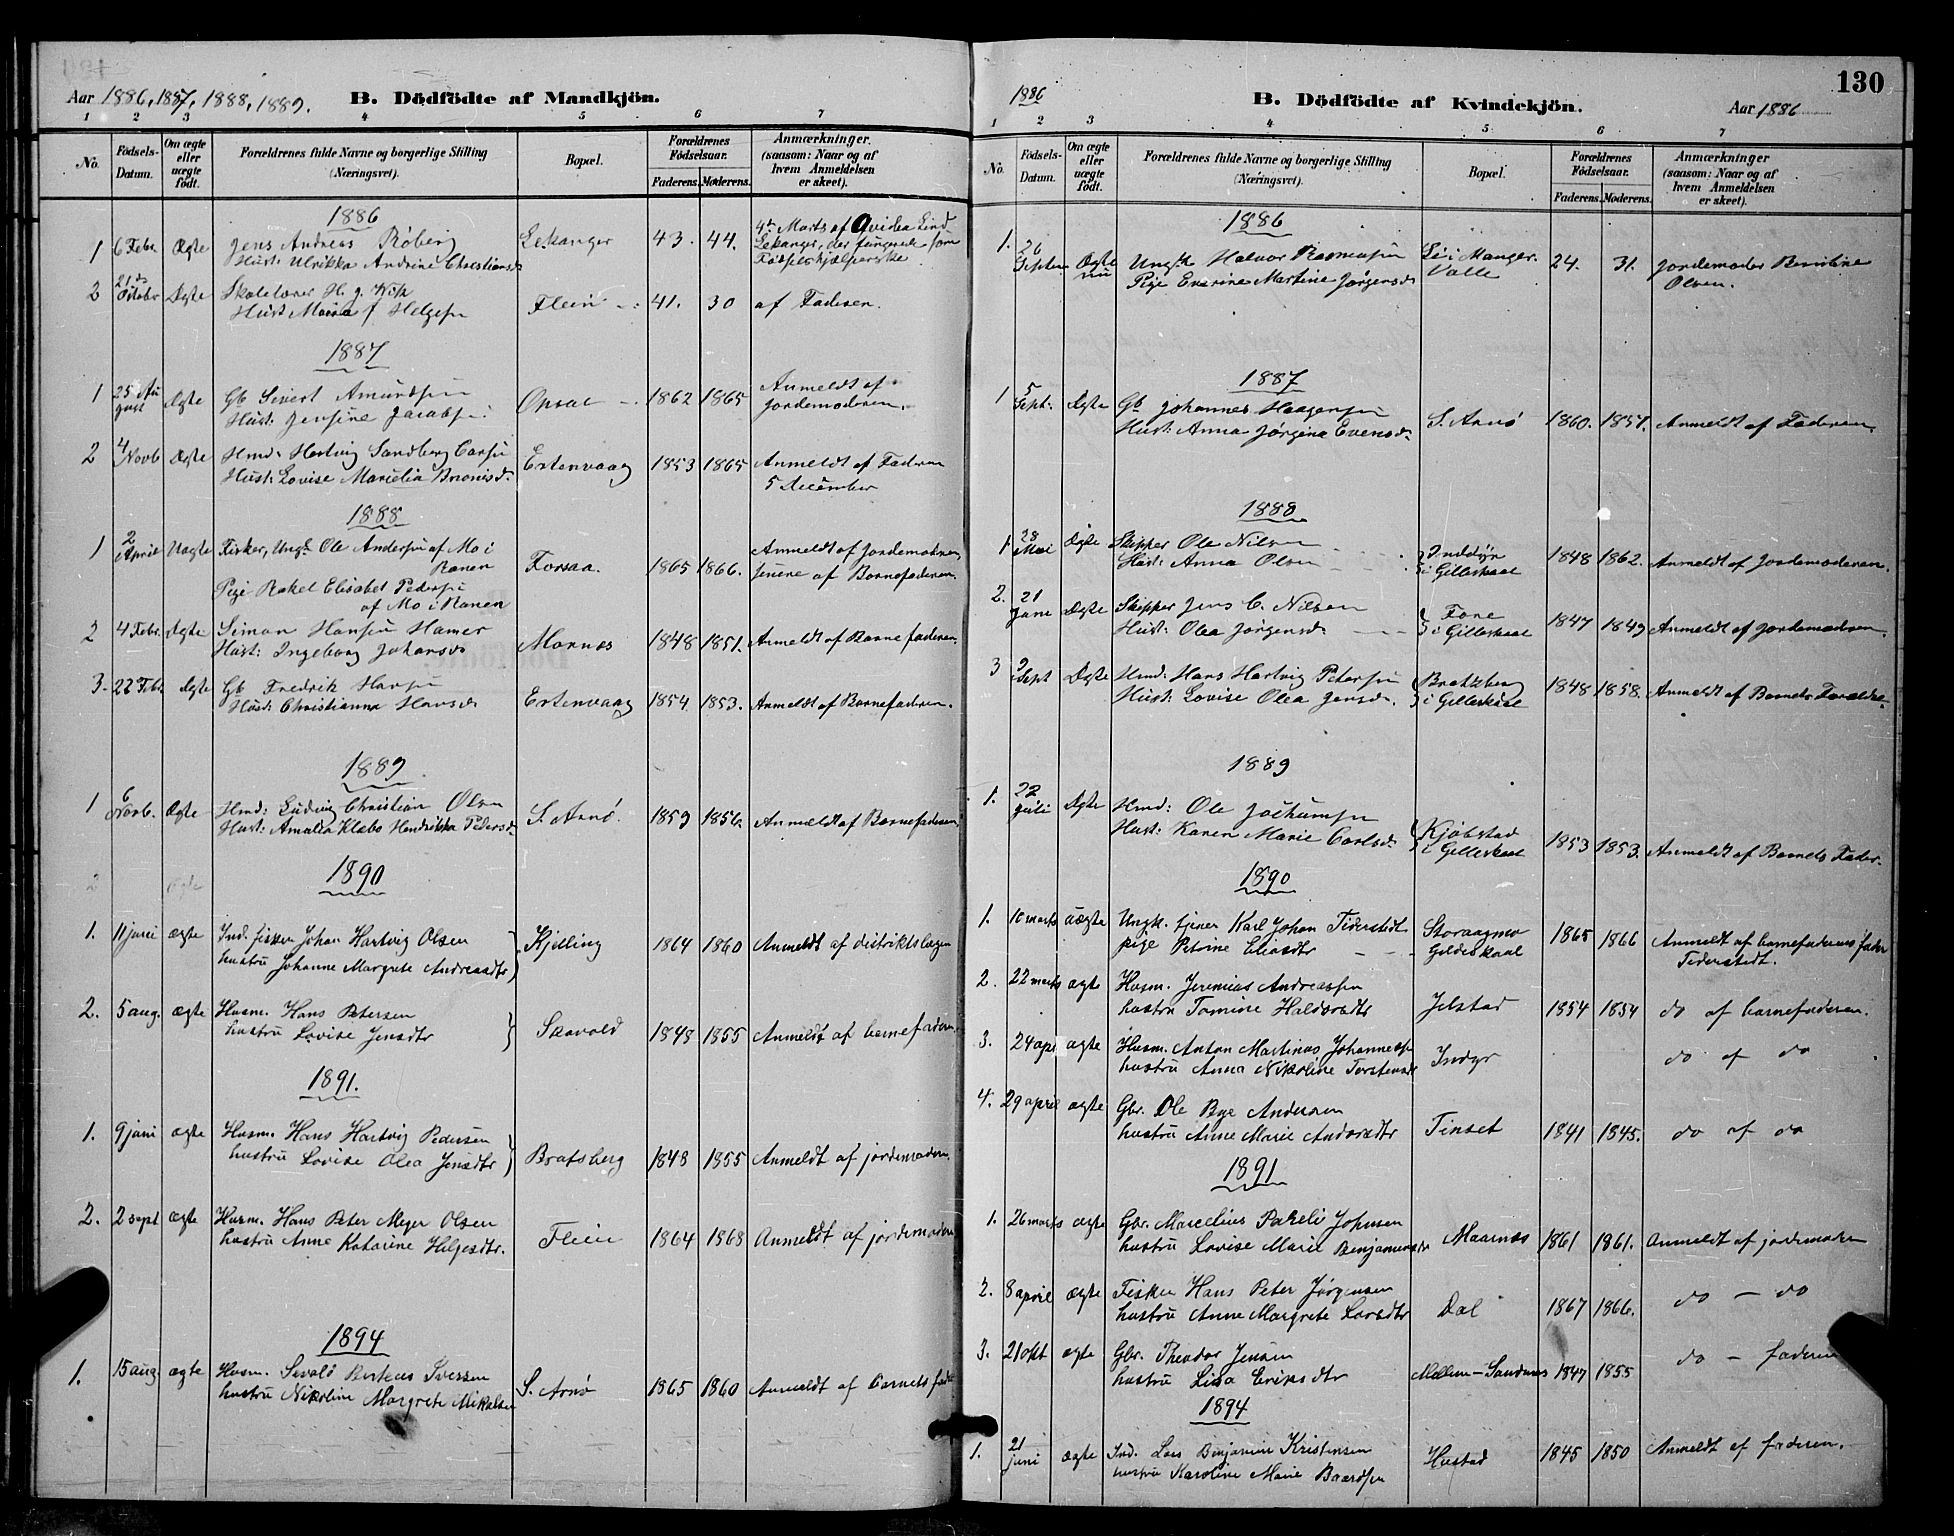 Aar 1886, 1887, 1888, 1889. B. Dödfödte af Mandkjön.
1 2 3 4 5 6 7
No. Födsels-Datum. Om ægte eller uægte født. Forældrenes fulde Navne og borgerlige Stilling (Næringsvei). Bopæl. Forældrenes Födselsaar. Faderens. Moderens. Anmærkninger. (saasom: Naar og af hvem Anmeldelsen er skeet).
1886
1 6 Febr Ægte Jens Andreas Røberg Lekanger 43. 44. 4de Marts af Lind
Hust: Ulrikka Andrine Christiansd. Lekanger, der fungerede som
Fødselshjælperske
2 21de Octobr Ægte Skolelærer H. J. Flein 41. 30 af Faderen.
Hust: Helgesen
1887
1 25 August Ægte Gb Sivert Amundsen Opsal 1862 1865 Anmeldt af
Hust: Jensine Jacobsen Jordemoderen.
2 4 Novb Ægte Hmd: Hartvig Sandberg Estenvaag 1853 1865 Anmeldt af Faderen
Hust: Lovise 5 December
1888
1 2 April Uægte Fisker, Ungk. Ole Andersen af Mo i Ranen Forsaa. 1865 1866. Anmeldt af Jordemoderen,
senere af Barnefaderen.
Pige Rakel Elisabet Pedersen
af Mo i Ranen
2 4 Febr. Ægte Simon Hansen Hamer Mornes 1848 1851. Anmeldt af Barnefaderen.
Hust: Ingeborg Johansd
3. 27 Febr Ægte Gb Fredrik Hansen Estenvaag 1854 1853. Anmeldt af Barnefaderen.
Hust: Christianna Hansd
1889
1 6 Novb. Ægte Hmd: Ludvig Christian Olsen S. Arnø. 1859 1856. Anmeldt af Barnefaderen.
Hust: Amalia Klæbo Hendrikka Pedersd
2 Ægte
1890
1. 11 juni ægte Ind. fisker Johan Hartvig Olsen Kjelling 1864 1860 Anmeldt af distriktslægen
hustru Johanne Margrete Andreasdtr
2. 5 aug. ægte Husm. Hans Petersen Skavold 1848 1855 Anmeldt af barnefaderen.
hustru Lovise Jensdtr
1891.
1. 9 juni ægte Husm. Hans Hartvig Pedersen Bratsberg 1848 1855 Anmeldt af jordemoderen.
hustru Lovise Olea Jensdtr
2. 2 sept ægte Husm. Hans Peter Meyer Olsen Flein 1864 1868 Anmeldt af jordemoderen
hustru Anne Katarine Helgesdtr.
1894
1. 15 aug ægte Husm. Sevald Iversen S. Arnø 1865 1860 Anmeldt af barnets fader
hustru Nikoline Margrete Mikalsen
130
1886 B. Dödfödte af Kvindekjön. Aar 1886
1 2 3 4 5 6 7
No. Födsels-Datum. Om ægte eller uægte født. Forældrenes fulde Navne og borgerlige Stilling (Næringsvei). Bopæl. Forældrenes Födselsaar. Faderens. Moderens. Anmærkninger (saasom: Naar og af hvem Anmeldelsen er skeet).
1886
1. 26 Septem Ungk Halvor Rasmussen 24. 31. Jordemoder
Pige Martine Jørgensd Valle Olsen.
1887
1 5 Sept: Ægte Gb Johannes Haagensen S. Arnø 1860. 1857. Anmeldt af Faderen.
Hust: Anna Jørgina Evensd.
1888
1. 28 Mai Ægte Skipper Ole Nilsen Inddyr i Gilleskaal 1848 1862. Anmeldt af Jordemoderen.
Hust: Anna Olsen
2. 21 June Ægte Skipper Jens C. Nilsen Fore i Gilleskaal 1847 1849 Anmeldt af Jordemoderen.
Hust: Olea Jørgensd.
3 9 Sept Ægte Hmd: Hans Hartvig Petersen Bratsberg i Gilleskaal 1848 1858. Anmeldt af Barnets Forældre
Hust: Lovise Olea Jensd.
1889
1. 22 Juli Ægte Hmd: Ole Jochumsen Kjøbstad i Gilleskaal 1853 1853. Anmeldt af Barnets Fader.
Hust: Karen Marie Carlsd.
1890
1. 10 marts uægte Ungk. tjener Karl Johan Tiderstedt Storaagmo 1865 1866 Anmeldt af barnefaderens fader
pige Petrine Eliasdtr Gildeskaal Tiderstedt.
2. 22 marts ægte Husm. Jeremias Andreassen Jelstad 1854 1854 do af barnefaderen.
hustru Tomine Haldorsdtr
3. 24 apr ægte Husm. Anton Martinus Johannessen Indyr do af do
hustru Anna Nikoline Torstensdtr
4. 29 april ægte Gbr. Ole Bye Andersen Finset 1841 1845. do af do
hustru Anne Marie Andorsdtr
1891
1. 26 marts ægte Gbr. Marcelius Pareli Johnsen Maarnes 1861 1861. Anmeldt af jordemoderen
hustru Lovise Marie Benjaminsdtr
2. 8 april ægte Fisker Hans Peter Jørgensen Dal 1867 1866. do — do
hustru Anne Margrete Larsdtr
3. 21 okt ægte Gbr. Theodor Jensen Mellem-Sandnes 1847 1855 do — faderen
hustru Lisa Eriksdtr
1894
1. 21 juni ægte Ind. Lars Benjamin Kristensen Hustad 1845 1850 Anmeldt af faderen.
hustru Karoline Marie Baardsen